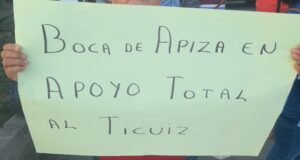 BOCA DE APIZA EN
APOYO TOTAL
AL TICUIZ.